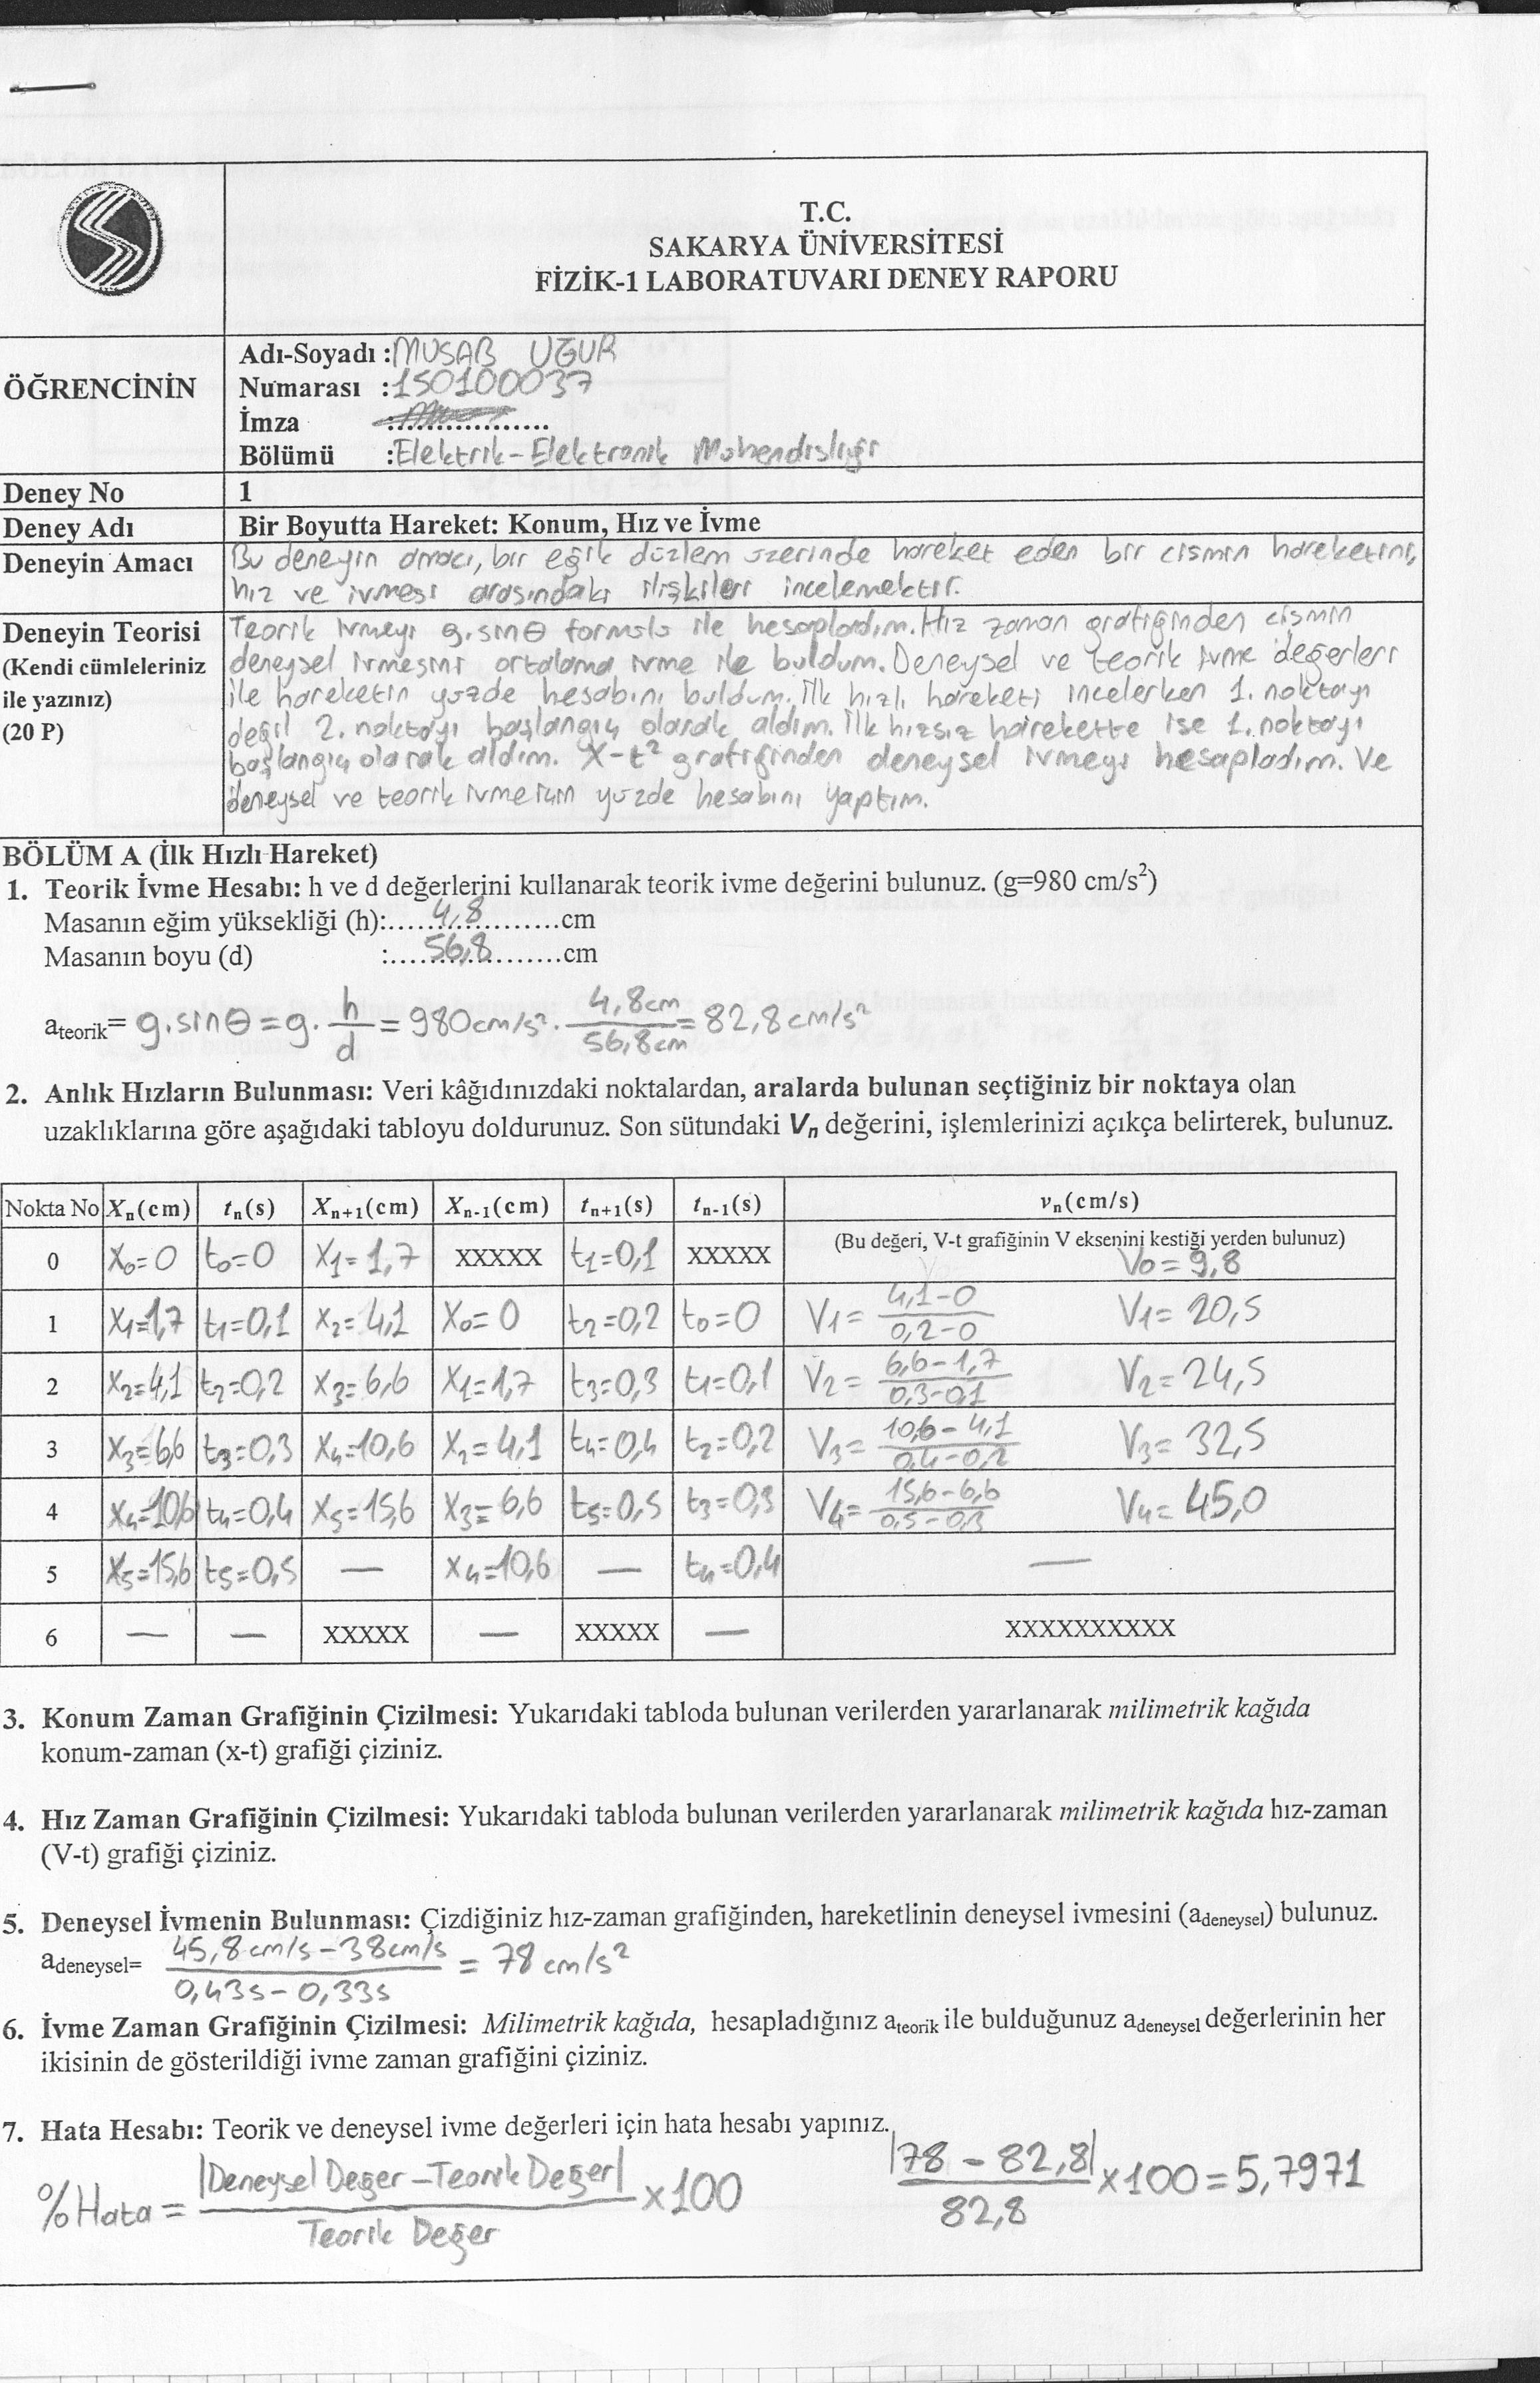 T.C.
SAKARYA ÜNİVERSİTESİ
FİZİK-1 LABORATUVARI DENEY RAPORU
ÖĞRENCİNİN
Adı-Soyadı : MUSAB UĞUR
Numarası : 150100037
İmza :................
Bölümü : Elektrik-Elektronik Mühendisliği
Deney No 1
Deney Adı Bir Boyutta Hareket: Konum, Hız ve İvme
Deneyin Amacı Bu deneyin amacı, bir eğik düzlem üzerinde hareket eden bir cismin hareketini,
hız ve ivmesi arasındaki ilişkileri incelemektir.
Deneyin Teorisi Teorik ivmeyi g.sinθ formülü ile hesapladım. Hız zaman grafiğinden cismin
(Kendi cümleleriniz deneysel ivmesini ortalama ivme ile buldum. Deneysel ve teorik ivme değerleri
ile yazınız) ile hareketin yüzde hesabını buldum. İlk hızlı hareketi incelerken 1. noktayı
(20 P) değil 2. noktayı başlangıç olarak aldım. İlk hızsız harekette ise 1. noktayı
başlangıç olarak aldım. X-t² grafiğinden deneysel ivmeyi hesapladım. Ve
deneysel ve teorik ivmenin yüzde hesabını yaptım.
BÖLÜM A (İlk Hızlı Hareket)
1. Teorik İvme Hesabı: h ve d değerlerini kullanarak teorik ivme değerini bulunuz. (g=980 cm/s²)
Masanın eğim yüksekliği (h):.....4,8..........cm
Masanın boyu (d) :.....56,8..........cm
a_teorik = g.sinθ = g. h/d = 980cm/s² . 4,8cm/56,8cm = 82,8cm/s²
2. Anlık Hızların Bulunması: Veri kâğıdınızdaki noktalardan, aralarda bulunan seçtiğiniz bir noktaya olan
uzaklıklarına göre aşağıdaki tabloyu doldurunuz. Son sütundaki Vn değerini, işlemlerinizi açıkça belirterek, bulunuz.
Nokta No Xn(cm) tn(s) Xn+1(cm) Xn-1(cm) tn+1(s) tn-1(s) vn(cm/s)
0 X₀=0 t₀=0 X₁=1,7 XXXXX t₁=0,1 XXXXX (Bu değeri, V-t grafiğinin V eksenini kestiği yerden bulunuz) V₀=9,8
1 X₁=1,7 t₁=0,1 X₂=4,1 X₀=0 t₂=0,2 t₀=0 V₁= 4,1-0/0,2-0 V₁=20,5
2 X₂=4,1 t₂=0,2 X₃=6,6 X₁=1,7 t₃=0,3 t₁=0,1 V₂= 6,6-1,7/0,3-0,1 V₂=24,5
3 X₃=6,6 t₃=0,3 X₄=10,6 X₂=4,1 t₄=0,4 t₂=0,2 V₃= 10,6-4,1/0,4-0,2 V₃=32,5
4 X₄=10,6 t₄=0,4 X₅=15,6 X₃=6,6 t₅=0,5 t₃=0,3 V₄= 15,6-6,6/0,5-0,3 V₄=45,0
5 X₅=15,6 t₅=0,5 — X₄=10,6 — t₄=0,4 —
6 — — XXXXX — XXXXX — XXXXXXXXXX
3. Konum Zaman Grafiğinin Çizilmesi: Yukarıdaki tabloda bulunan verilerden yararlanarak milimetrik kağıda
konum-zaman (x-t) grafiği çiziniz.
4. Hız Zaman Grafiğinin Çizilmesi: Yukarıdaki tabloda bulunan verilerden yararlanarak milimetrik kağıda hız-zaman
(V-t) grafiği çiziniz.
5. Deneysel İvmenin Bulunması: Çizdiğiniz hız-zaman grafiğinden, hareketlinin deneysel ivmesini (a_deneysel) bulunuz.
a_deneysel= 45,8cm/s-38cm/s / 0,43s-0,33s = 78 cm/s²
6. İvme Zaman Grafiğinin Çizilmesi: Milimetrik kağıda, hesapladığınız a_teorik ile bulduğunuz a_deneysel değerlerinin her
ikisinin de gösterildiği ivme zaman grafiğini çiziniz.
7. Hata Hesabı: Teorik ve deneysel ivme değerleri için hata hesabı yapınız.
%Hata = |Deneysel Değer-Teorik Değer| / Teorik Değer x100 |78-82,8| / 82,8 x100=5,7971